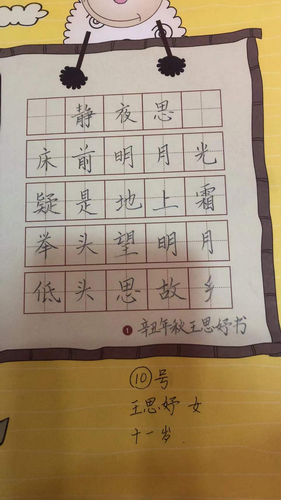 静夜思
床前明月光
疑是地上霜
举头望明月
低头思故乡
辛丑年秋王思妤书
⑩号
王思妤 女
十一岁